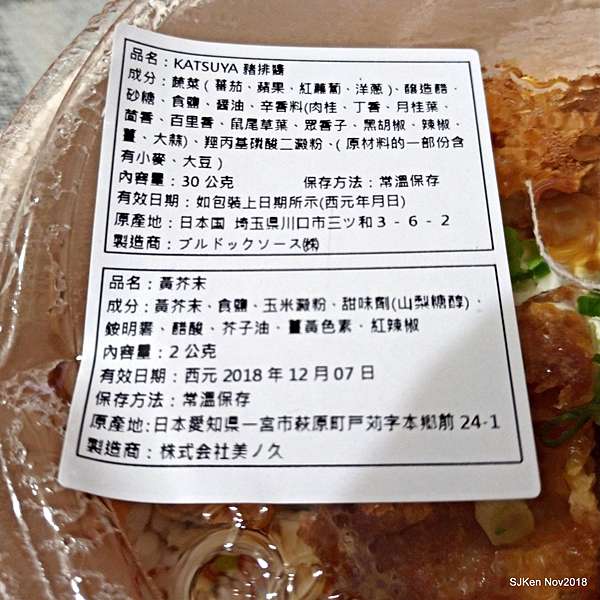 品名：KATSUYA 豬排醬
成分：蔬菜 ( 蕃茄、蘋果、紅蘿蔔、洋蔥 )、釀造醋、
砂糖、食鹽、醬油、辛香料(肉桂、丁香、月桂葉、
茴香、百里香、鼠尾草葉、眾香子、黑胡椒、辣椒、
薑、大蒜)、羥丙基磷酸二澱粉、( 原材料的一部份含
有小麥、大豆 )
內容量：30 公克 保存方法：常溫保存
有效日期：如包裝上日期所示(西元年月日)
原產地：日本国 埼玉県川口市三ツ和３－６－２
製造商：ブルドックソース㈱
品名：黃芥末
成分：黃芥末、食鹽、玉米澱粉、甜味劑(山梨糖醇)、
銨明礬、醋酸、芥子油、薑黃色素、紅辣椒
內容量：2 公克
有效日期：西元 2018 年 12 月 07 日
保存方法：常溫保存
原產地:日本愛知県一宮市萩原町戸苅字本郷前 24-1
製造商：株式会社美ノ久
SJKen Nov2018